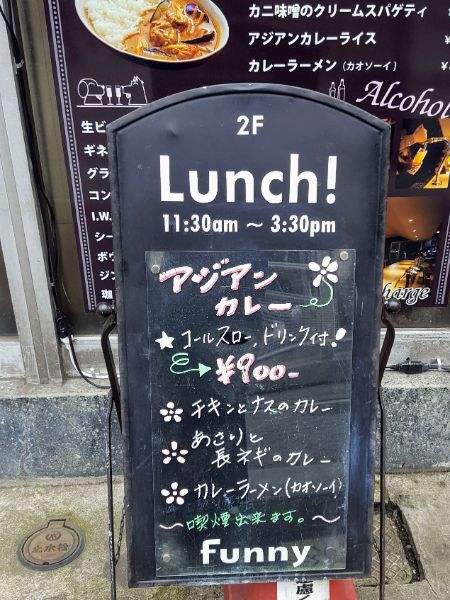 カニ味噌のクリームスパゲティ
アジアンカレーライス
カレーラーメン(カオソーイ)
Alcohol
生ビ
ギネ
グラ
コン
I.W.
シー
ボウ
ジン
珈
charge
2F
Lunch!
11:30am ～ 3:30pm
アジアン
カレー
★コールスロー、ドリンク付!
→¥900-
チキンとナスのカレー
あさりと
長ネギのカレー
カレーラーメン(カオソーイ)
～喫煙出来ます。～
funny
止水栓